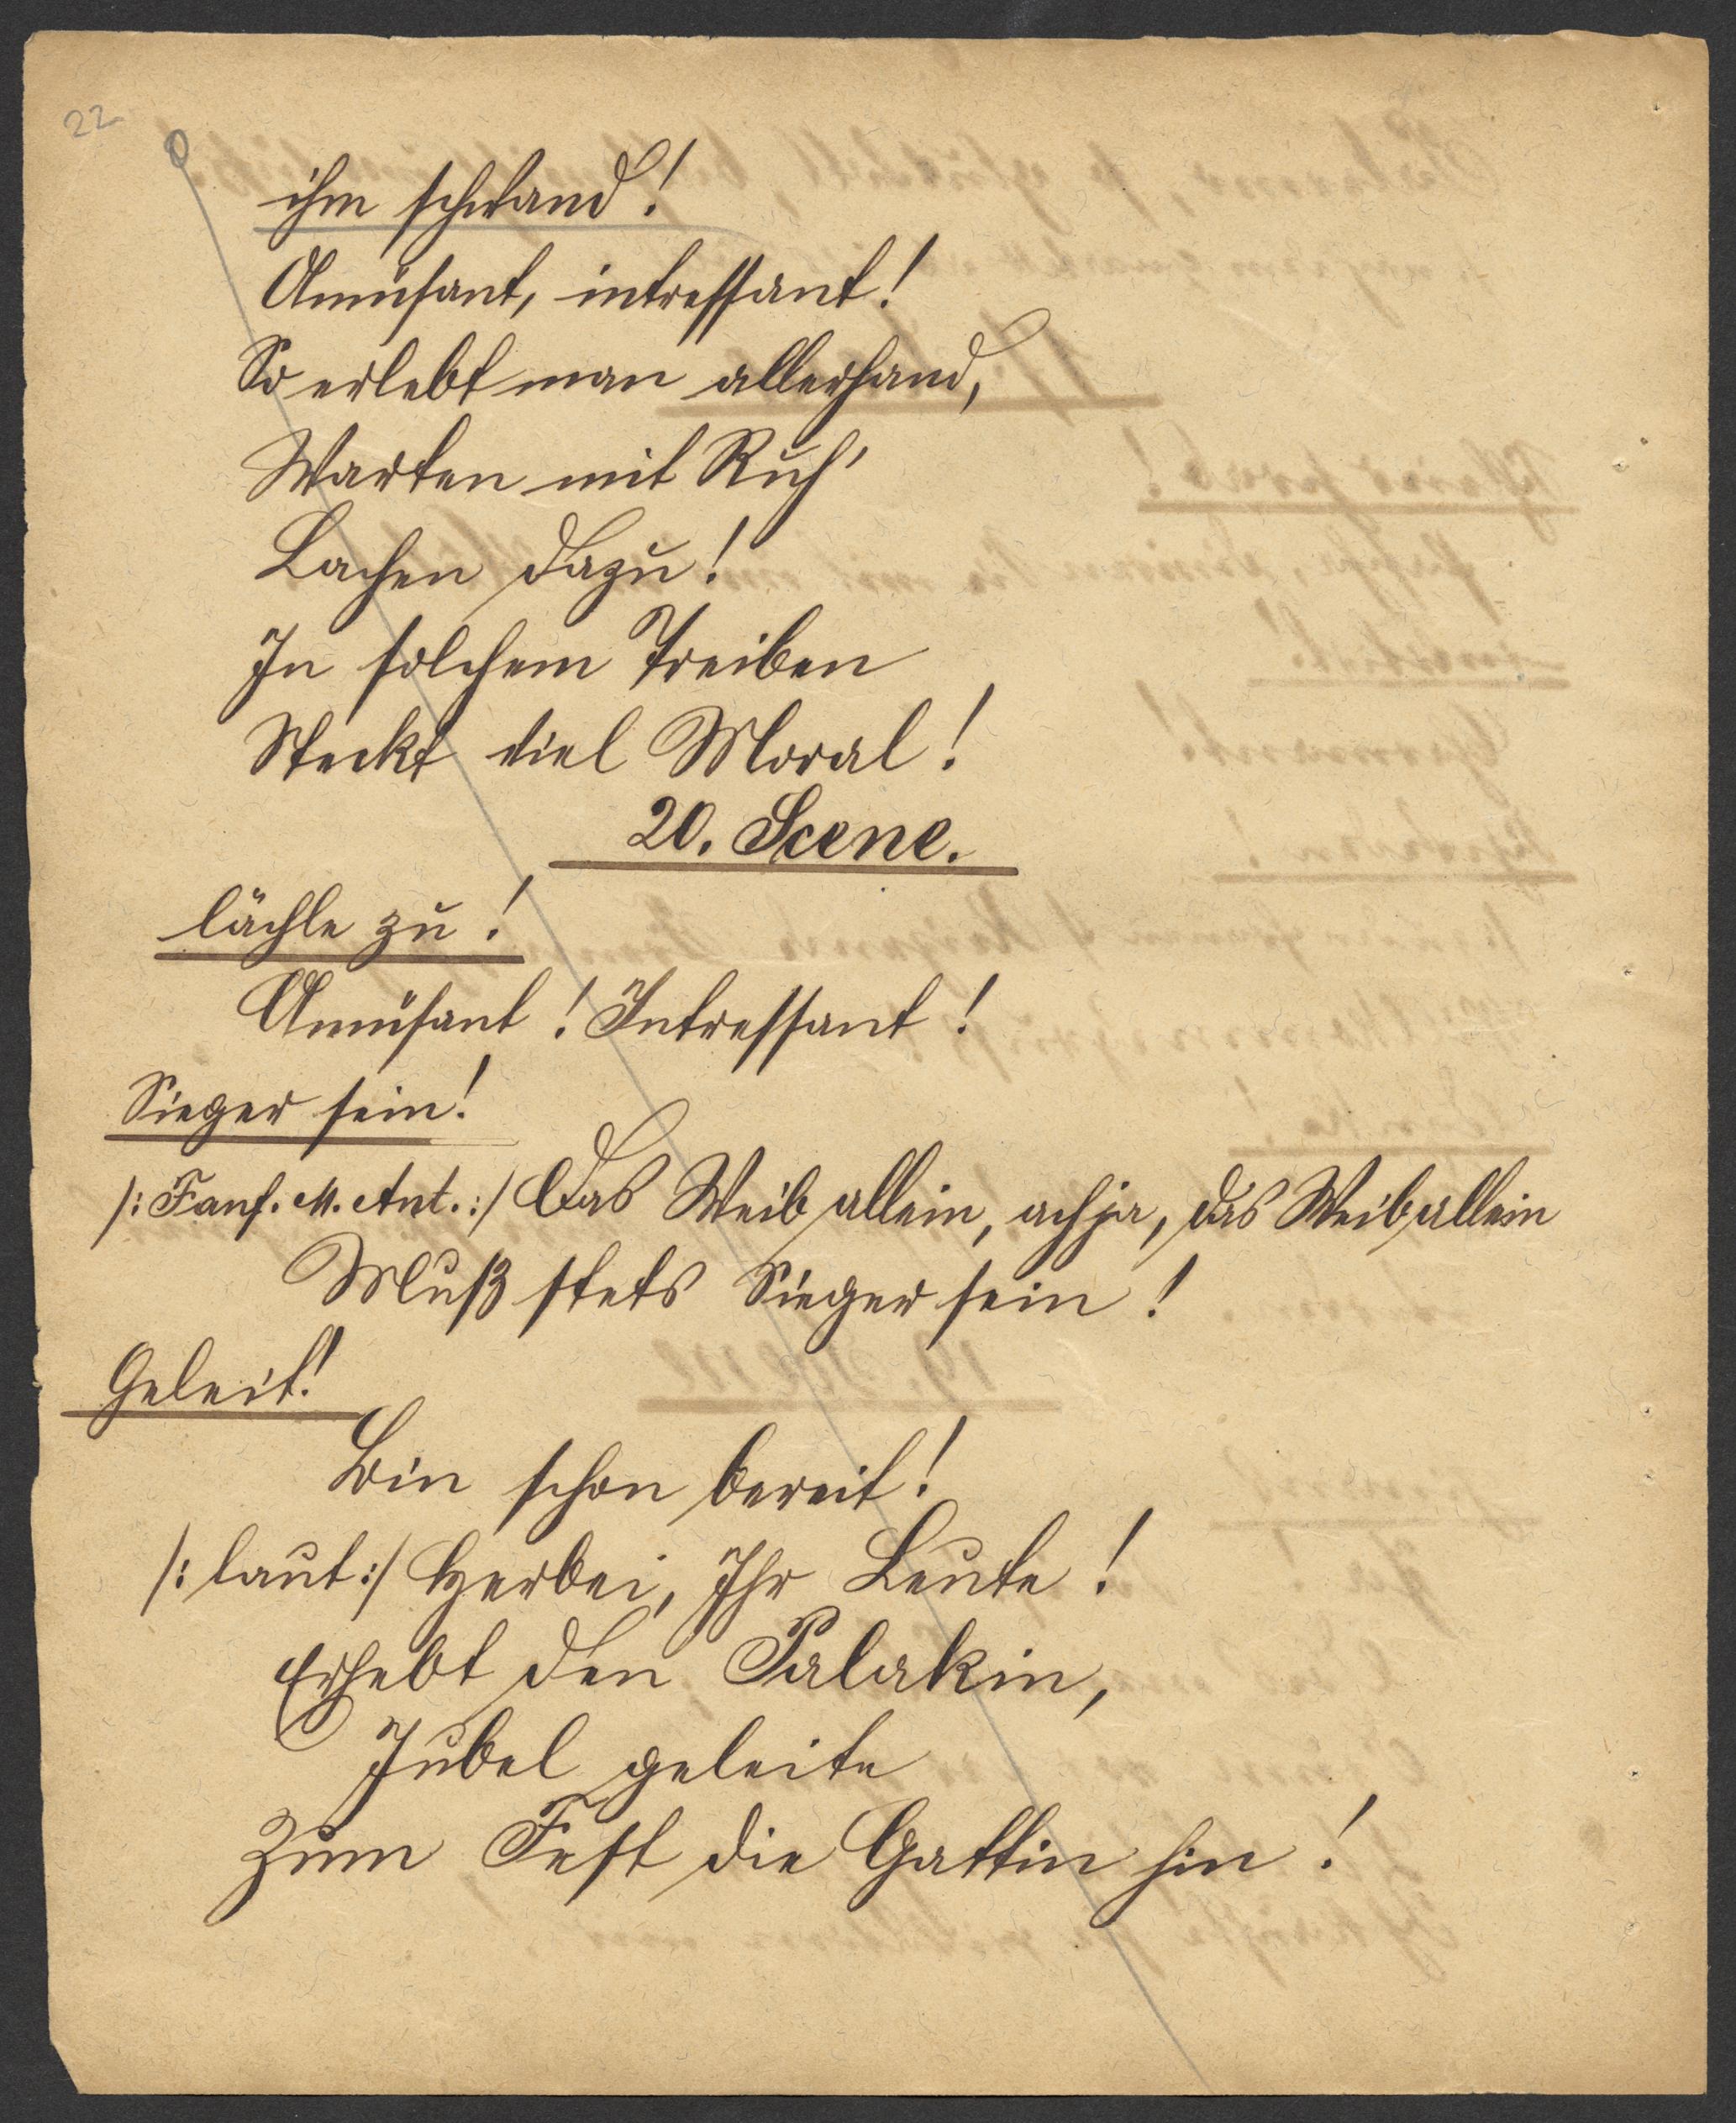 22
ihm schwand!
Amüsant, intressant!
So erlebt man allerhand,
Warten mit Ruh'
Lachen dazu!
In solchem Treiben
Steckt viel Moral!
20. Scene.
lächle zu!
Amüsant! Intressant!
Sieger sein!
/: Fanf. M. Ant.:/ Das Weib allein, ach ja, das Weib allein
Muß stets Sieger sein!
Geleit!
Bin schon bereit!
/: laut:/ Herbei, Ihr Leute!
Erhebt den Palakin,
Jubel geleite
Zum Fest die Gattin hin!